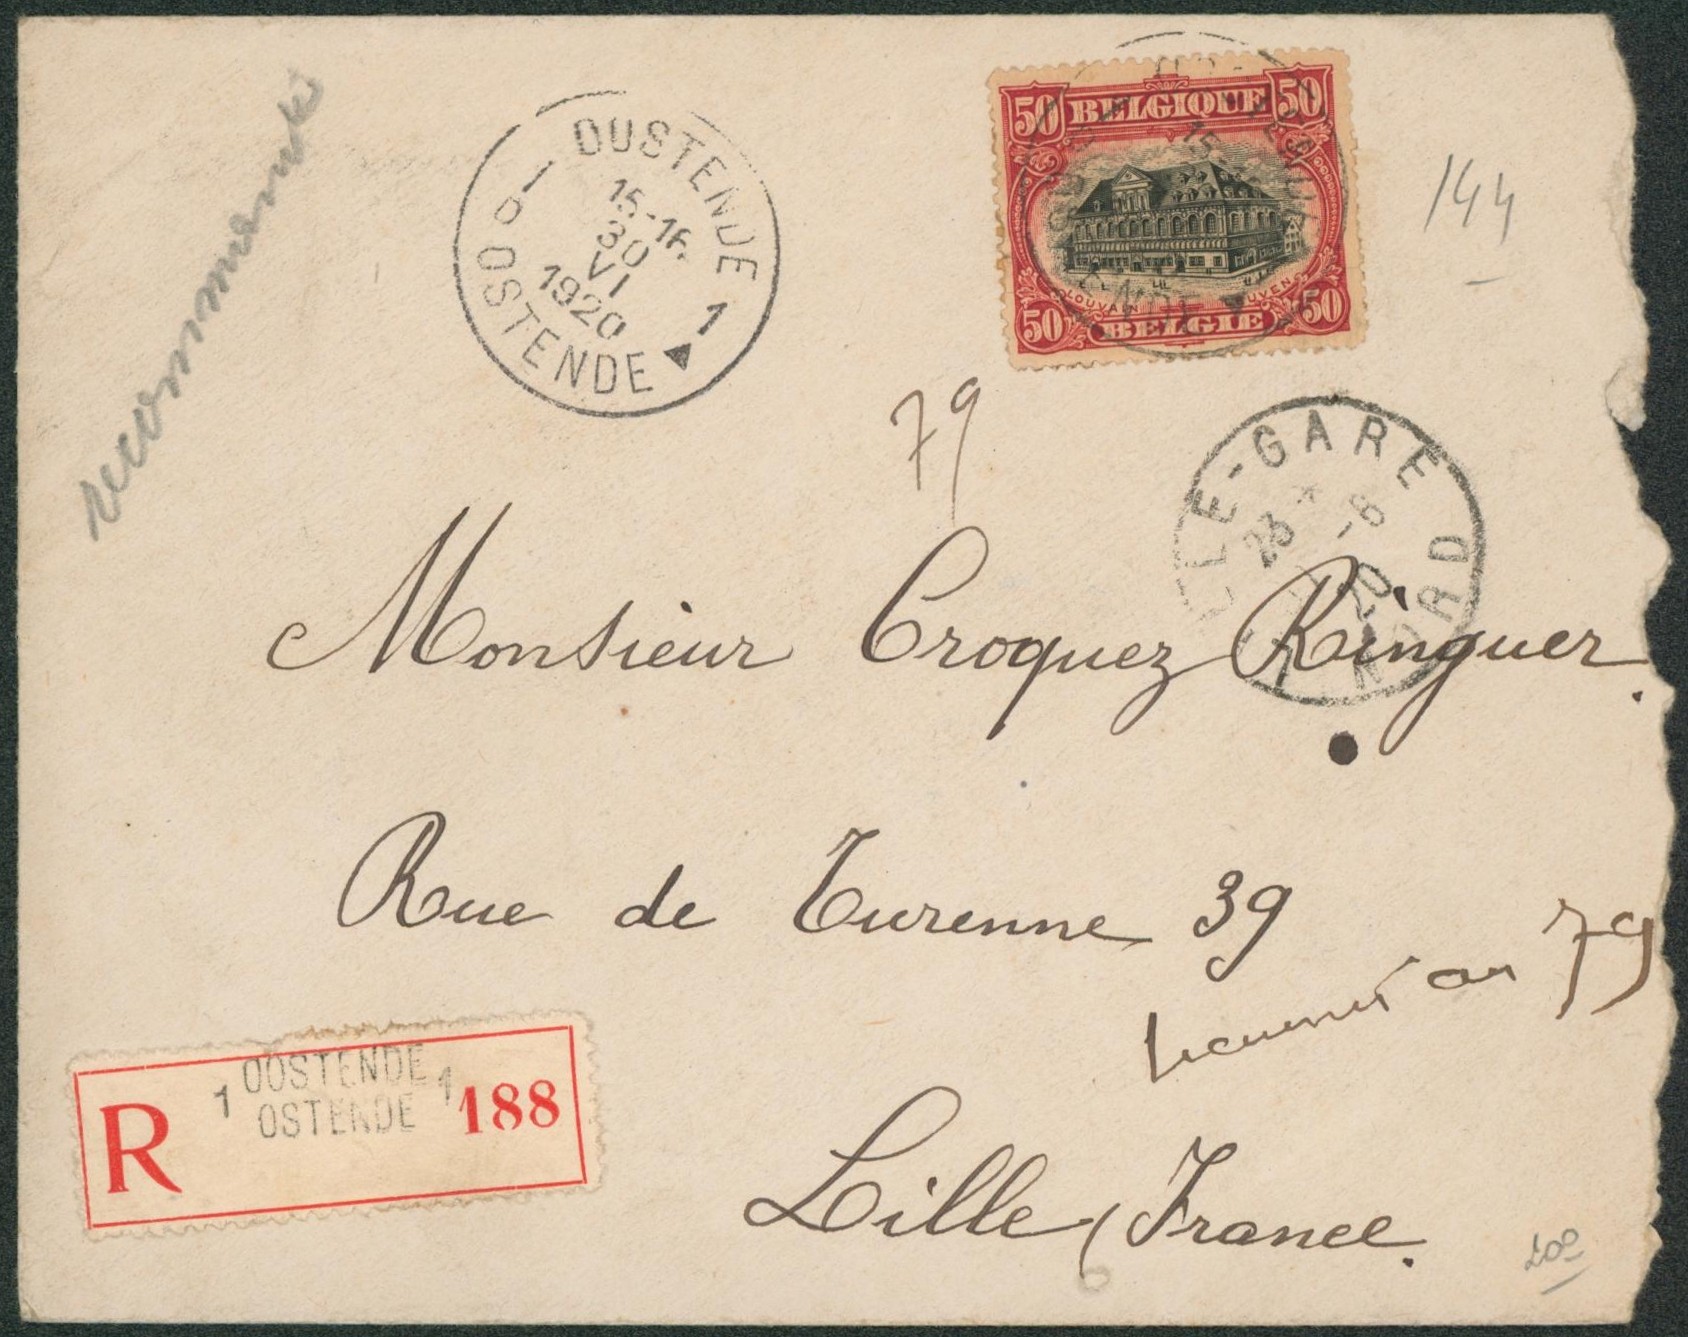 recommandé
OOSTENDE
1
15-16
30
VI
1920
OSTENDE
1
50 BELGIQUE 50
LOUVAIN
LEUVEN
50 BELGIE 50
144
79
LILLE-GARE
23 * -8
20
NORD
Monsieur Croquez Ringuer.
Rue de Turenne 39
au 79
R
1 OOSTENDE 1
OSTENDE
188
Lille (France.